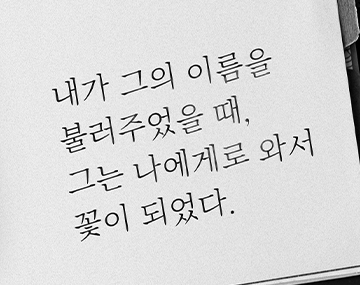 내가 그의 이름을
불러주었을 때,
그는 나에게로 와서
꽃이 되었다.